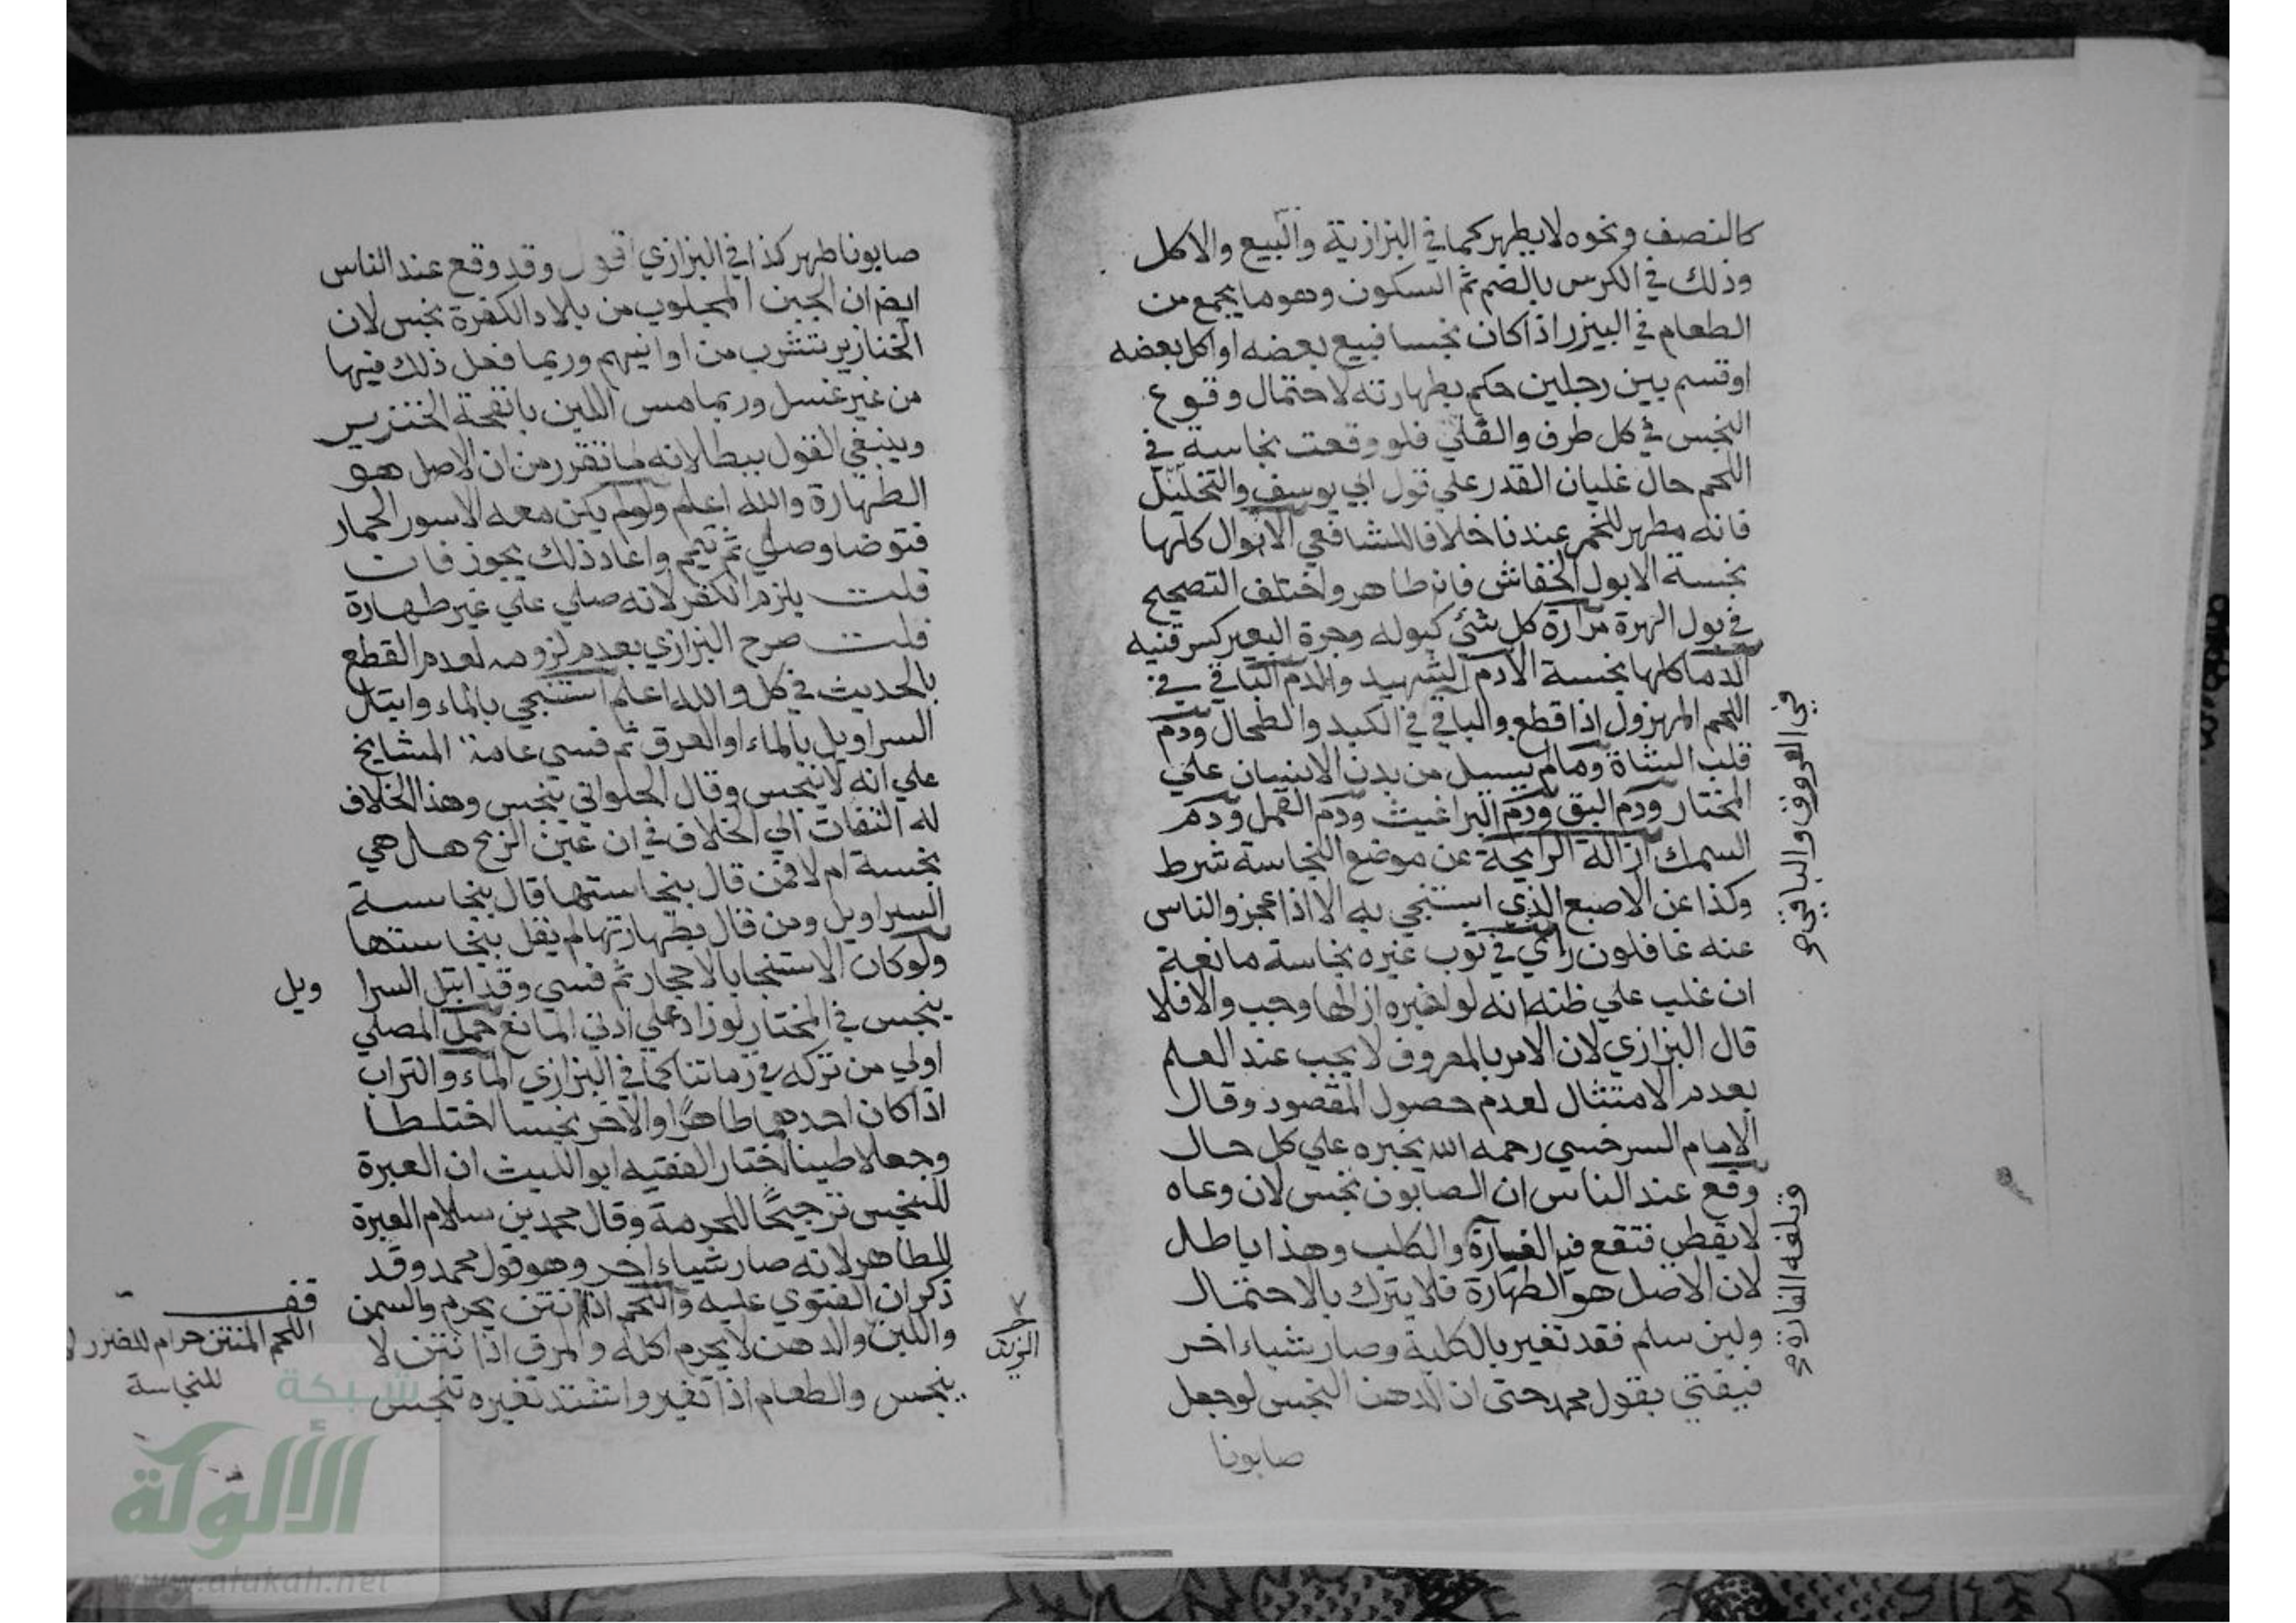 كالنصف ونحوه لا يطهر كما في البزازية والبيع والاكل
وذلك في الكرس بالضم ثم السكون وهو ما يجمع من
الطعام في البيزر اذا كان نجسا فبيع بعضه او اكل بعضه
او قسم بين رجلين حكم بطهارته لاحتمال وقوع
النجس في كل طرف والقلي فلو وقعت نجاسة في
اللحم حال غليان القدر علي قول ابي يوسف والتخليل
فانه مطهر للخمر عندنا خلافا للشافعي الابوال كلها
نجسة الا بول الخفاش فانه طاهر واختلف التصحيح
في بول الهرة مرارة كل شئ كبوله وجرة البعير كسرقنيه
الدما كلها نجسة الا دم الشهيد والدم الباقي في
اللحم المهزول اذا قطع والباقي في الكبد والطحال ودم
قلب الشاة وما لم يسيل من بدن الانسان علي
المختار ودم البق ودم البراغيث ودم القمل ودم
السمك ازالة الرايحة عن موضع النجاسة شرط
وكذا عن الاصبع الذي استنجي به الا اذا عجز والناس
عنه غافلون رأي في ثوب غيره نجاسة مانعة
ان غلب علي ظنه انه لو اخبره ازالها وجب والا فلا
قال البزازي لان الامر بالمعروف لا يجب عند العلم
بعدم الامتثال لعدم حصول المقصود وقال
الامام السرخسي رحمه الله يخبره علي كل حال
وقع عند الناس ان الصابون نجس لان وعاه
لا يغطي فتقع فيه الفارة والكلب وهذا باطل
لان الاصل هو الطهارة فلا يترك بالاحتمال
ولين سلم فقد تغير بالكلية وصار شياء اخر
فيفتي بقول محمد حتى ان الدهن النجس لو جعل
صابونا
في العروق والباقي
وتلغه الفارة
صابونا طهر كذا في البزازي اقول وقد وقع عند الناس
ايضا ان الجبن المجلوب من بلاد الكفرة نجس لان
الخنازير تشرب من اوانيهم وربما فعل ذلك فيها
من غير غسل وربما مس اللبن بانفحة الخنزير
وينبغي القول ببطلانه لما تقرر من ان الاصل هو
الطهارة والله اعلم ولو لم يكن معه الا سور الحمار
فتوضا وصلي ثم تيمم واعاد ذلك يجوز فان
قلت يلزم الكفر لانه صلي علي غير طهارة
قلت صرح البزازي بعدم لزومه لعدم القطع
بالحديث في كل والله اعلم استنجي بالماء وابتل
السراويل بالماء او العرق ثم فسي عامة المشايخ
علي انه لا ينجس وقال الحلواني ينجس وهذا الخلاف
له التفات الي الخلاف في ان عين الريح هل هي
نجسة ام لا فمن قال بنجاستها قال بنجاسة
السراويل ومن قال بطهارتها لم يقل بنجاستها
ولو كان الاستنجا بالاحجار ثم فسي وقد ابتل السرا ويل
ينجس في المختار لو زاد علي ادني المانع حمل المصلي
اولي من تركه في زماننا كما في البزازي الماء والتراب
اذا كان احدهما طاهرا والاخر نجسا اختلطا
وجعلا طينا اختار الفقيه ابو الليث ان العبرة
للنجس ترجيحا للحرمة وقال محمد بن سلام العبرة
للطاهر لانه صار شياء اخر وهو قول محمد وقد
ذكر ان الفتوي عليه واللحم اذا انتن يحرم والسمن
واللبن والدهن لا يحرم اكله والمرق اذا نتن لا
ينجس والطعام اذا تغير واشتد تغيره تنجس
الزيت
قف
اللحم المنتن حرام للضرر لا
للنجاسة
شبكة
الألوكة
www.alukah.net